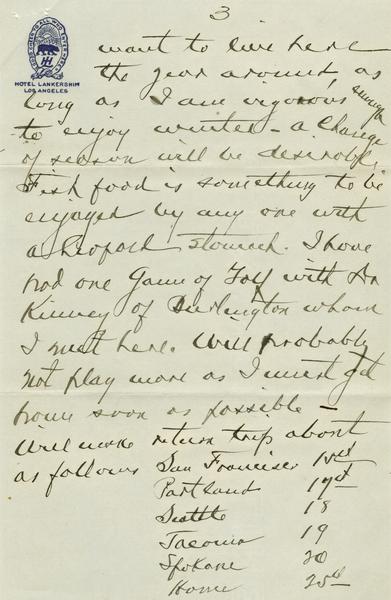 3
HOTEL LANKERSHIM
LOS ANGELES
want to live here
the year around, as
long as I am vigorous enough
to enjoy winter - a change
of season will be desirable,
Fish food is something to be
enjoyed by any one with
a stomach. I have
had one Game of Golf with Dr
Kinney of Burlington whom
I met here. Will probably
not play more as I must get
home soon as possible -
Will make return trip about
as follows San Francisco
Portland 17th
Seattle 18
Tacoma 19
Spokane 20
Home 25th